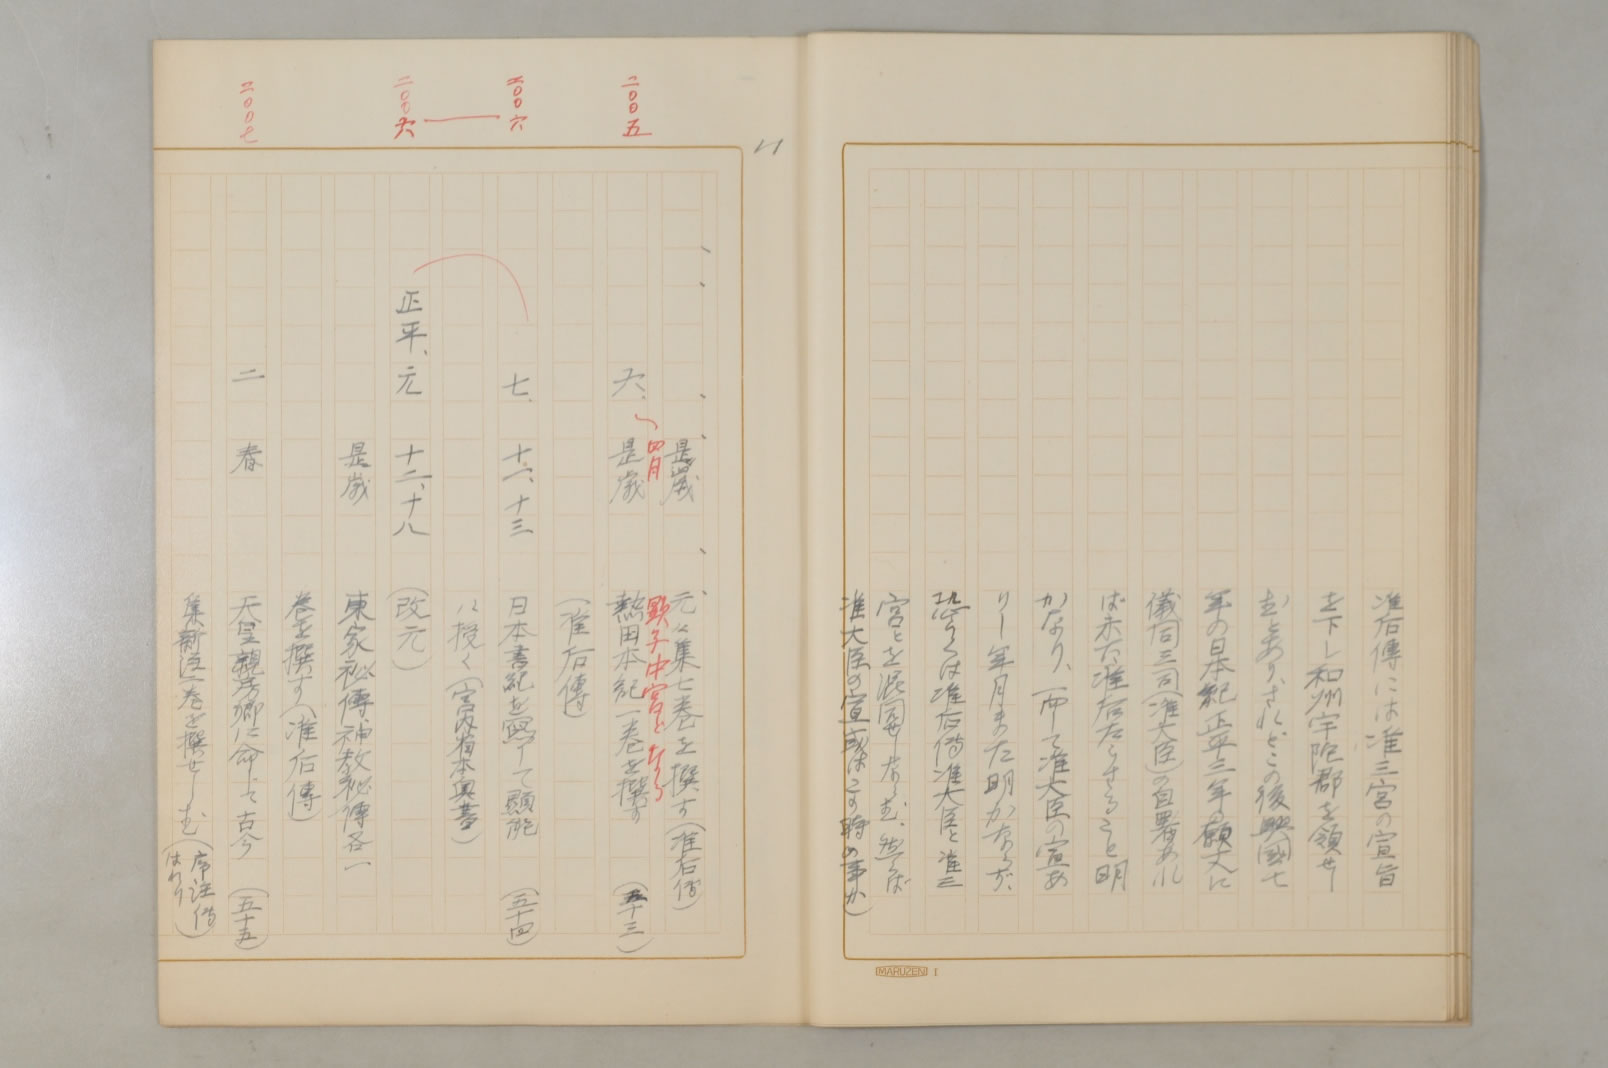 准后傳には准三宮の宣旨
を下し和州宇陀郡を領せし
むとあり、されどこの後興國七
年の日本紀正平二年の願文に
儀同三司(准大臣)の自署あれ
ば未だ准后たらざること明
かなり、而して准大臣の宣あ
りし年月また明かならず、
恐らくは准后傳准大臣と准三
宮とを混同せしならむ、然らば
准大臣の宣或はこの時の事か)
MARUZEN I
11
是歳 元元集七巻を撰す(准后傳)
四月 顕子中宮となる
二〇〇五 六、 是歳 熱田本紀一巻を撰す (五十三)
(准后傳)
二〇〇六 七、 十一、十三 日本書紀を寫して顕能 (五十四)
に授く(宮内省本奥書)
二〇〇六 正平、元 十二、十八 (改元)
是歳 東家秘傳神教秘傳各一
巻を撰す(准后傳)
二〇〇七 二 春 天皇親房卿に命じて古今 (五十五)
集新注一巻を撰せしむ(序注傳はれり)